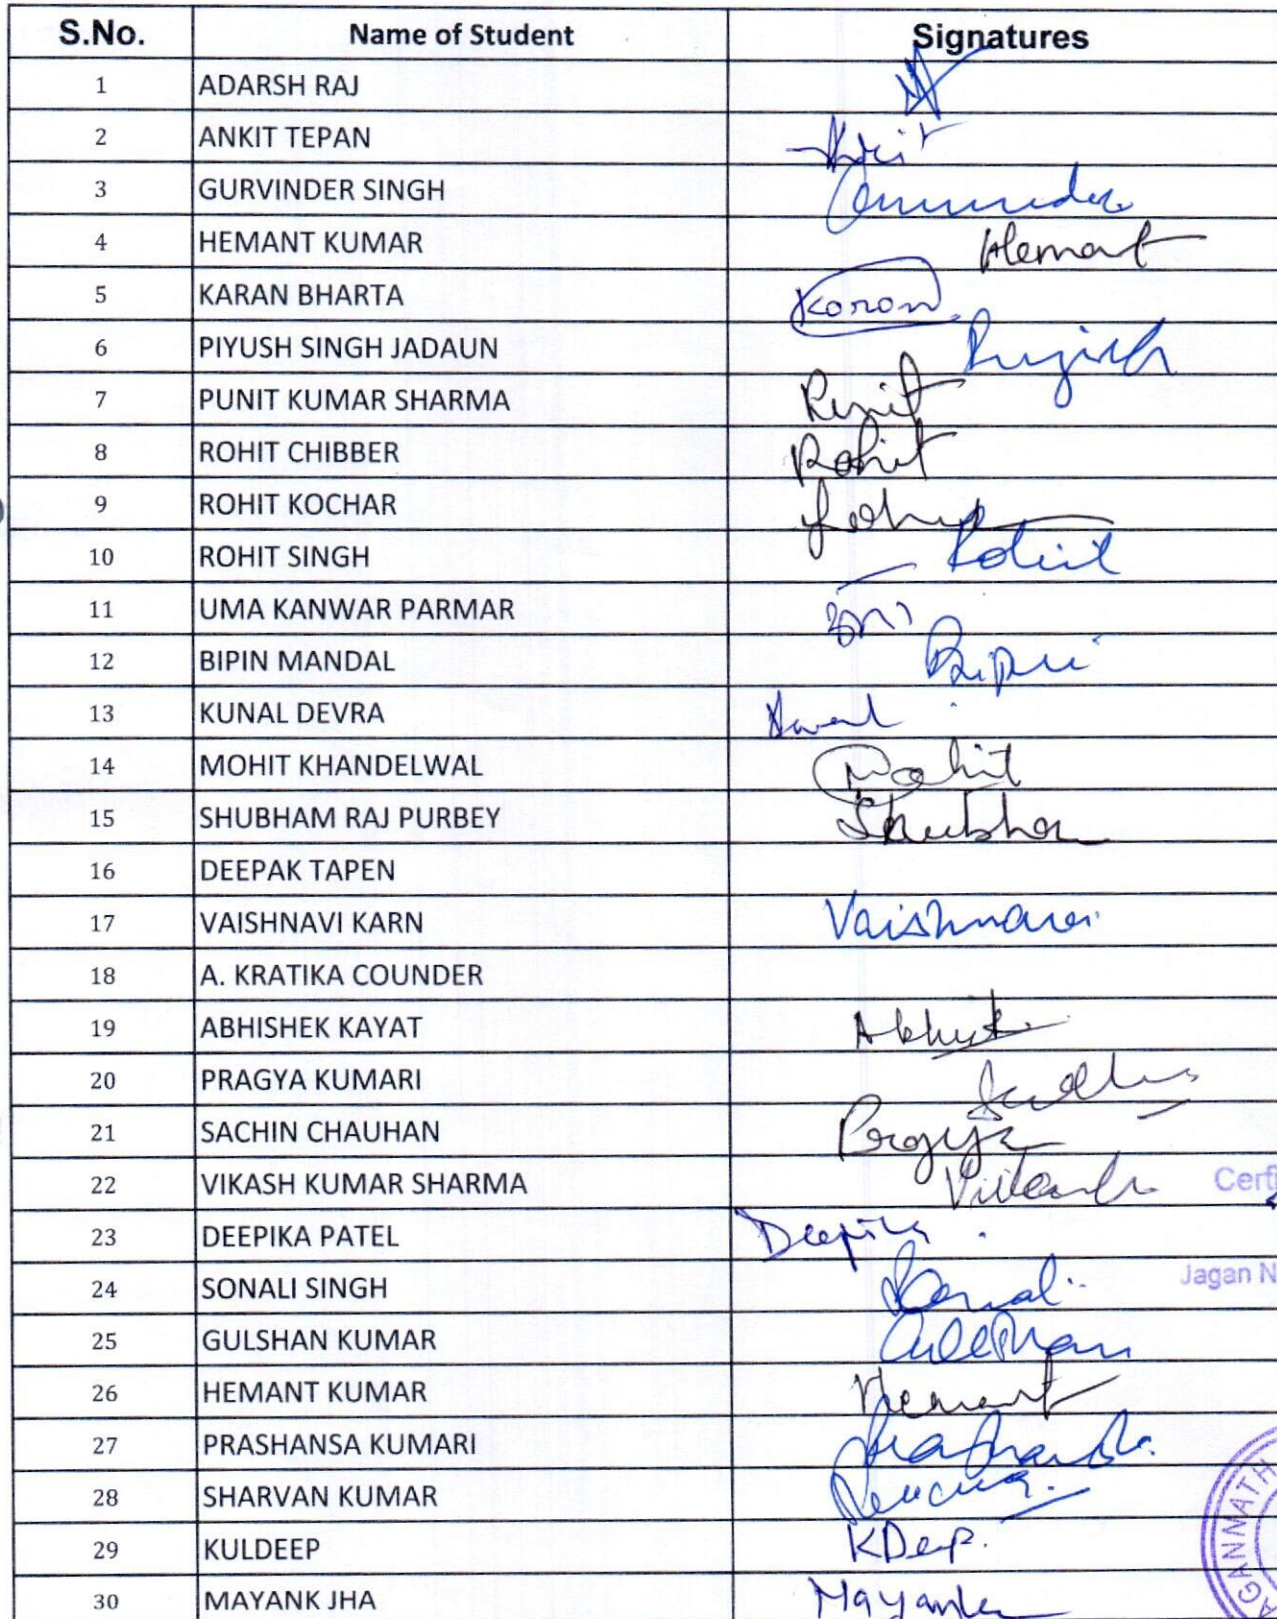 S.No. Name of Student Signatures
1 ADARSH RAJ
2 ANKIT TEPAN
3 GURVINDER SINGH
4 HEMANT KUMAR Hemant
5 KARAN BHARTA Karan
6 PIYUSH SINGH JADAUN
7 PUNIT KUMAR SHARMA Punit
8 ROHIT CHIBBER Rohit
9 ROHIT KOCHAR
10 ROHIT SINGH Rohit
11 UMA KANWAR PARMAR
12 BIPIN MANDAL Bipin
13 KUNAL DEVRA
14 MOHIT KHANDELWAL Mohit
15 SHUBHAM RAJ PURBEY
16 DEEPAK TAPEN
17 VAISHNAVI KARN Vaishnavi
18 A. KRATIKA COUNDER
19 ABHISHEK KAYAT
20 PRAGYA KUMARI
21 SACHIN CHAUHAN Pragya
22 VIKASH KUMAR SHARMA Vikash Certi
23 DEEPIKA PATEL Deepika
24 SONALI SINGH Sonali Jagan N
25 GULSHAN KUMAR Gulshan
26 HEMANT KUMAR Hemant
27 PRASHANSA KUMARI
28 SHARVAN KUMAR
29 KULDEEP KDeep.
30 MAYANK JHA Mayank
AGANNATH